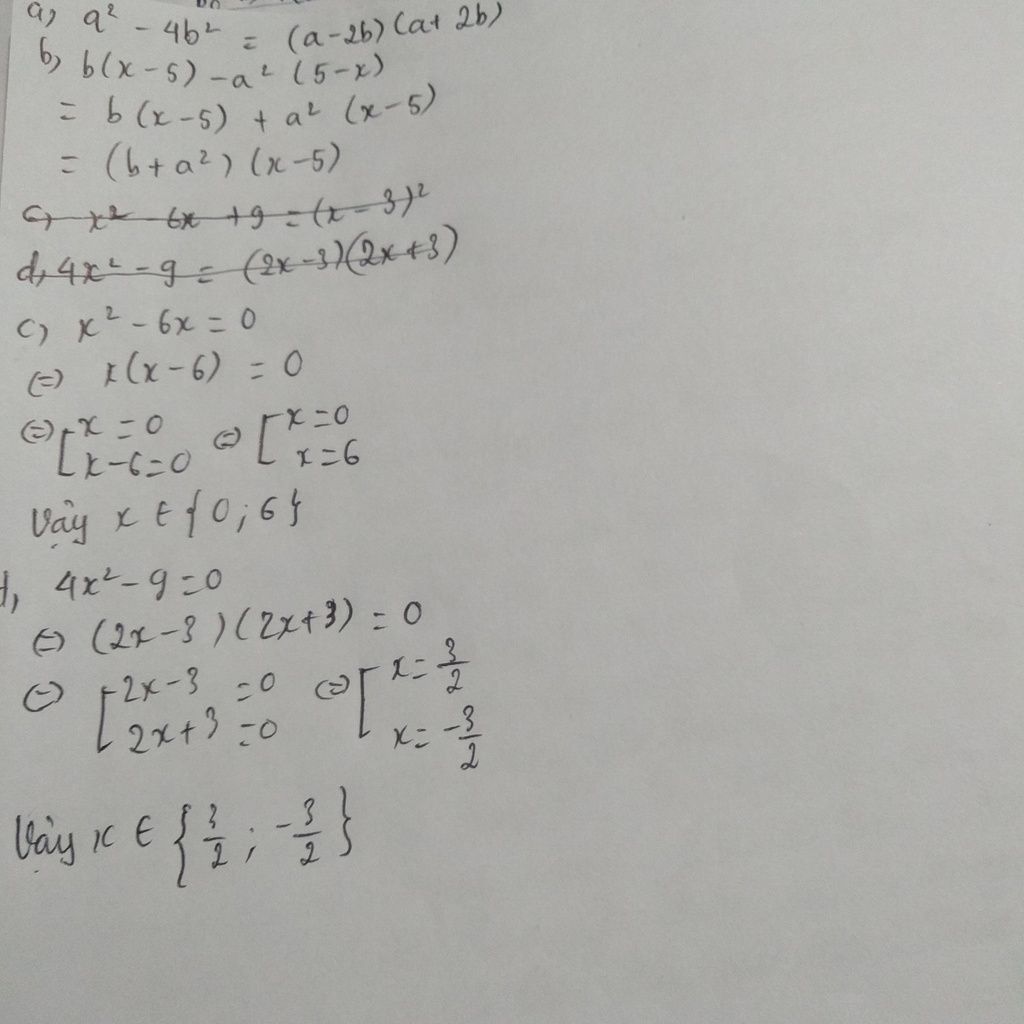 a, a² - 4b² = (a-2b)(a+2b)
b, b(x-5) - a² (5-x)
= b(x-5) + a² (x-5)
= (b+a²) (x-5)
c, x² - 6x + 9 = (x-3)²
d, 4x² - 9 = (2x-3)(2x+3)
c, x² - 6x = 0
⇔ x(x-6) = 0
⇔ [x = 0 ⇔ [x = 0
x-6=0 x=6
Vậy x ∈ {0; 6}
d, 4x² - 9 = 0
⇔ (2x-3)(2x+3) = 0
⇔ [2x-3 = 0 ⇔ [x = 3/2
2x+3 = 0 x = -3/2
Vậy x ∈ {3/2; -3/2}